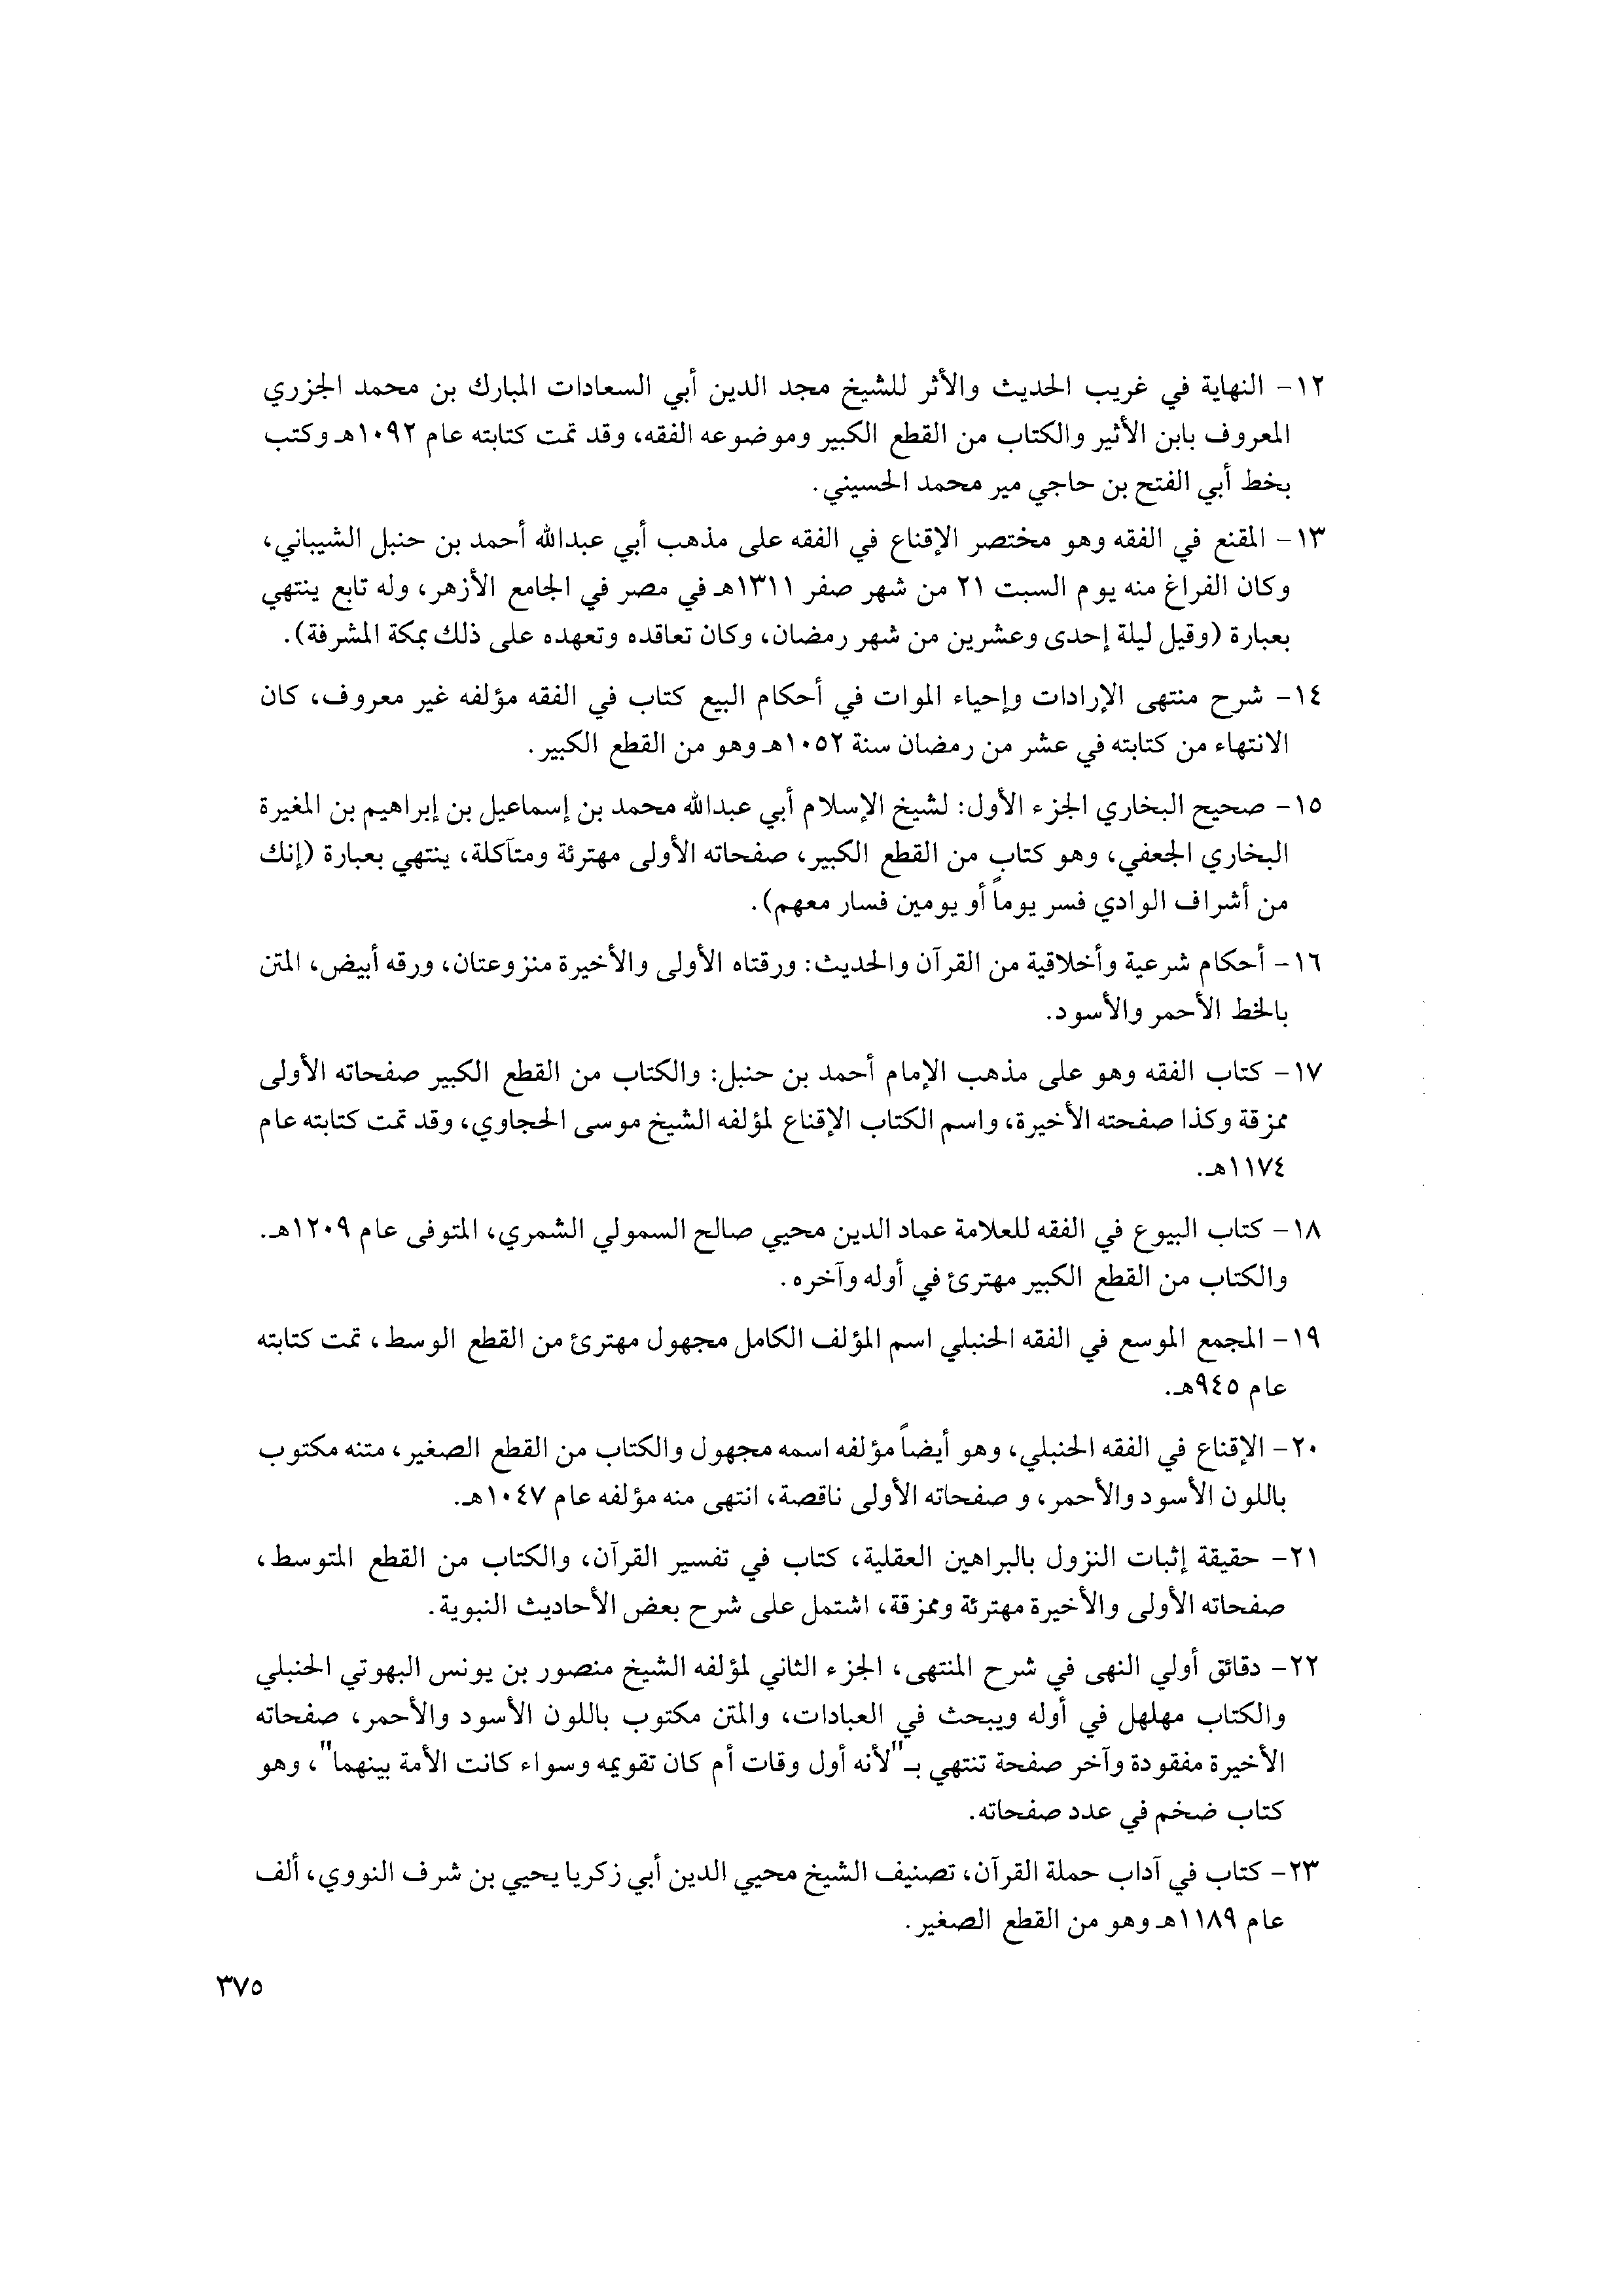 ١٢- النهاية في غريب الحديث والأثر للشيخ مجد الدين أبي السعادات المبارك بن محمد الجزري
المعروف بابن الأثير والكتاب من القطع الكبير وموضوعه الفقه، وقد تمت كتابته عام ١٠٩٢هـ وكتب
بخط أبي الفتح بن حاجي مير محمد الحسيني.
١٣- المقنع في الفقه وهو مختصر الإقناع في الفقه على مذهب أبي عبدالله أحمد بن حنبل الشيباني،
وكان الفراغ منه يوم السبت ٢١ من شهر صفر ١٣١١هـ في مصر في الجامع الأزهر، وله تابع ينتهي
بعبارة (وقيل ليلة إحدى وعشرين من شهر رمضان، وكان تعاقده وتعهده على ذلك بمكة المشرفة).
١٤- شرح منتهى الإرادات وإحياء الموات في أحكام البيع كتاب في الفقه مؤلفه غير معروف، كان
الانتهاء من كتابته في عشر من رمضان سنة ١٠٥٢هـ وهو من القطع الكبير.
١٥- صحيح البخاري الجزء الأول: لشيخ الإسلام أبي عبدالله محمد بن إسماعيل بن إبراهيم بن المغيرة
البخاري الجعفي، وهو كتاب من القطع الكبير، صفحاته الأولى مهترئة ومتآكلة، ينتهي بعبارة (إنك
من أشراف الوادي فسر يوماً أو يومين فسار معهم).
١٦- أحكام شرعية وأخلاقية من القرآن والحديث: ورقتاه الأولى والأخيرة منزوعتان، ورقه أبيض، المتن
بالخط الأحمر والأسود.
١٧- كتاب الفقه وهو على مذهب الإمام أحمد بن حنبل: والكتاب من القطع الكبير صفحاته الأولى
ممزقة وكذا صفحته الأخيرة، واسم الكتاب الإقناع لمؤلفه الشيخ موسى الحجاوي، وقد تمت كتابته عام
١١٧٤هـ.
١٨- كتاب البيوع في الفقه للعلامة عماد الدين محيي صالح السمولي الشمري، المتوفى عام ١٢٠٩هـ.
والكتاب من القطع الكبير مهترئ في أوله وآخره.
١٩- المجمع الموسع في الفقه الحنبلي اسم المؤلف الكامل مجهول مهترئ من القطع الوسط، تمت كتابته
عام ٩٤٥هـ.
٢٠- الإقناع في الفقه الحنبلي، وهو أيضاً مؤلفه اسمه مجهول والكتاب من القطع الصغير، متنه مكتوب
باللون الأسود والأحمر، و صفحاته الأولى ناقصة، انتهى منه مؤلفه عام ١٠٤٧هـ.
٢١- حقيقة إثبات النزول بالبراهين العقلية، كتاب في تفسير القرآن، والكتاب من القطع المتوسط،
صفحاته الأولى والأخيرة مهترئة وممزقة، اشتمل على شرح بعض الأحاديث النبوية.
٢٢- دقائق أولي النهى في شرح المنتهى، الجزء الثاني لمؤلفه الشيخ منصور بن يونس البهوتي الحنبلي
والكتاب مهلهل في أوله ويبحث في العبادات، والمتن مكتوب باللون الأسود والأحمر، صفحاته
الأخيرة مفقودة وآخر صفحة تنتهي بـ"لأنه أول وقات أم كان تقويمه وسواء كانت الأمة بينهما"، وهو
كتاب ضخم في عدد صفحاته.
٢٣- كتاب في آداب حملة القرآن، تصنيف الشيخ محيي الدين أبي زكريا يحيي بن شرف النووي، ألف
عام ١١٨٩هـ وهو من القطع الصغير.
٣٧٥